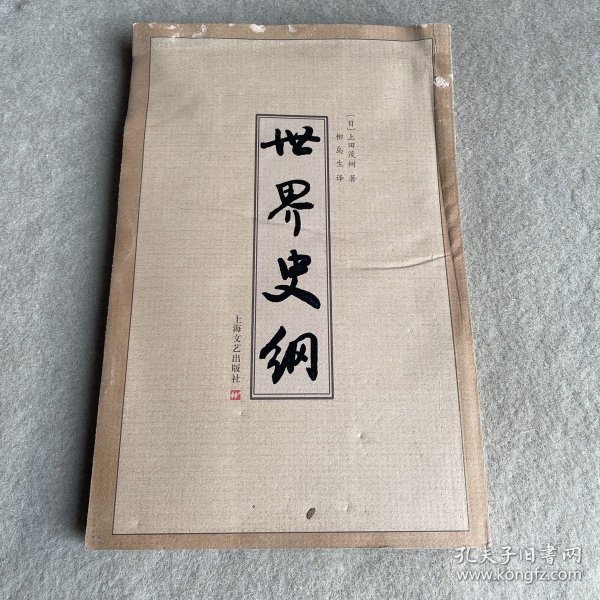 [日]上田茂树 著
柳岛生 译
世界史纲
上海文艺出版社
孔夫子旧书网
www.kongfz.com